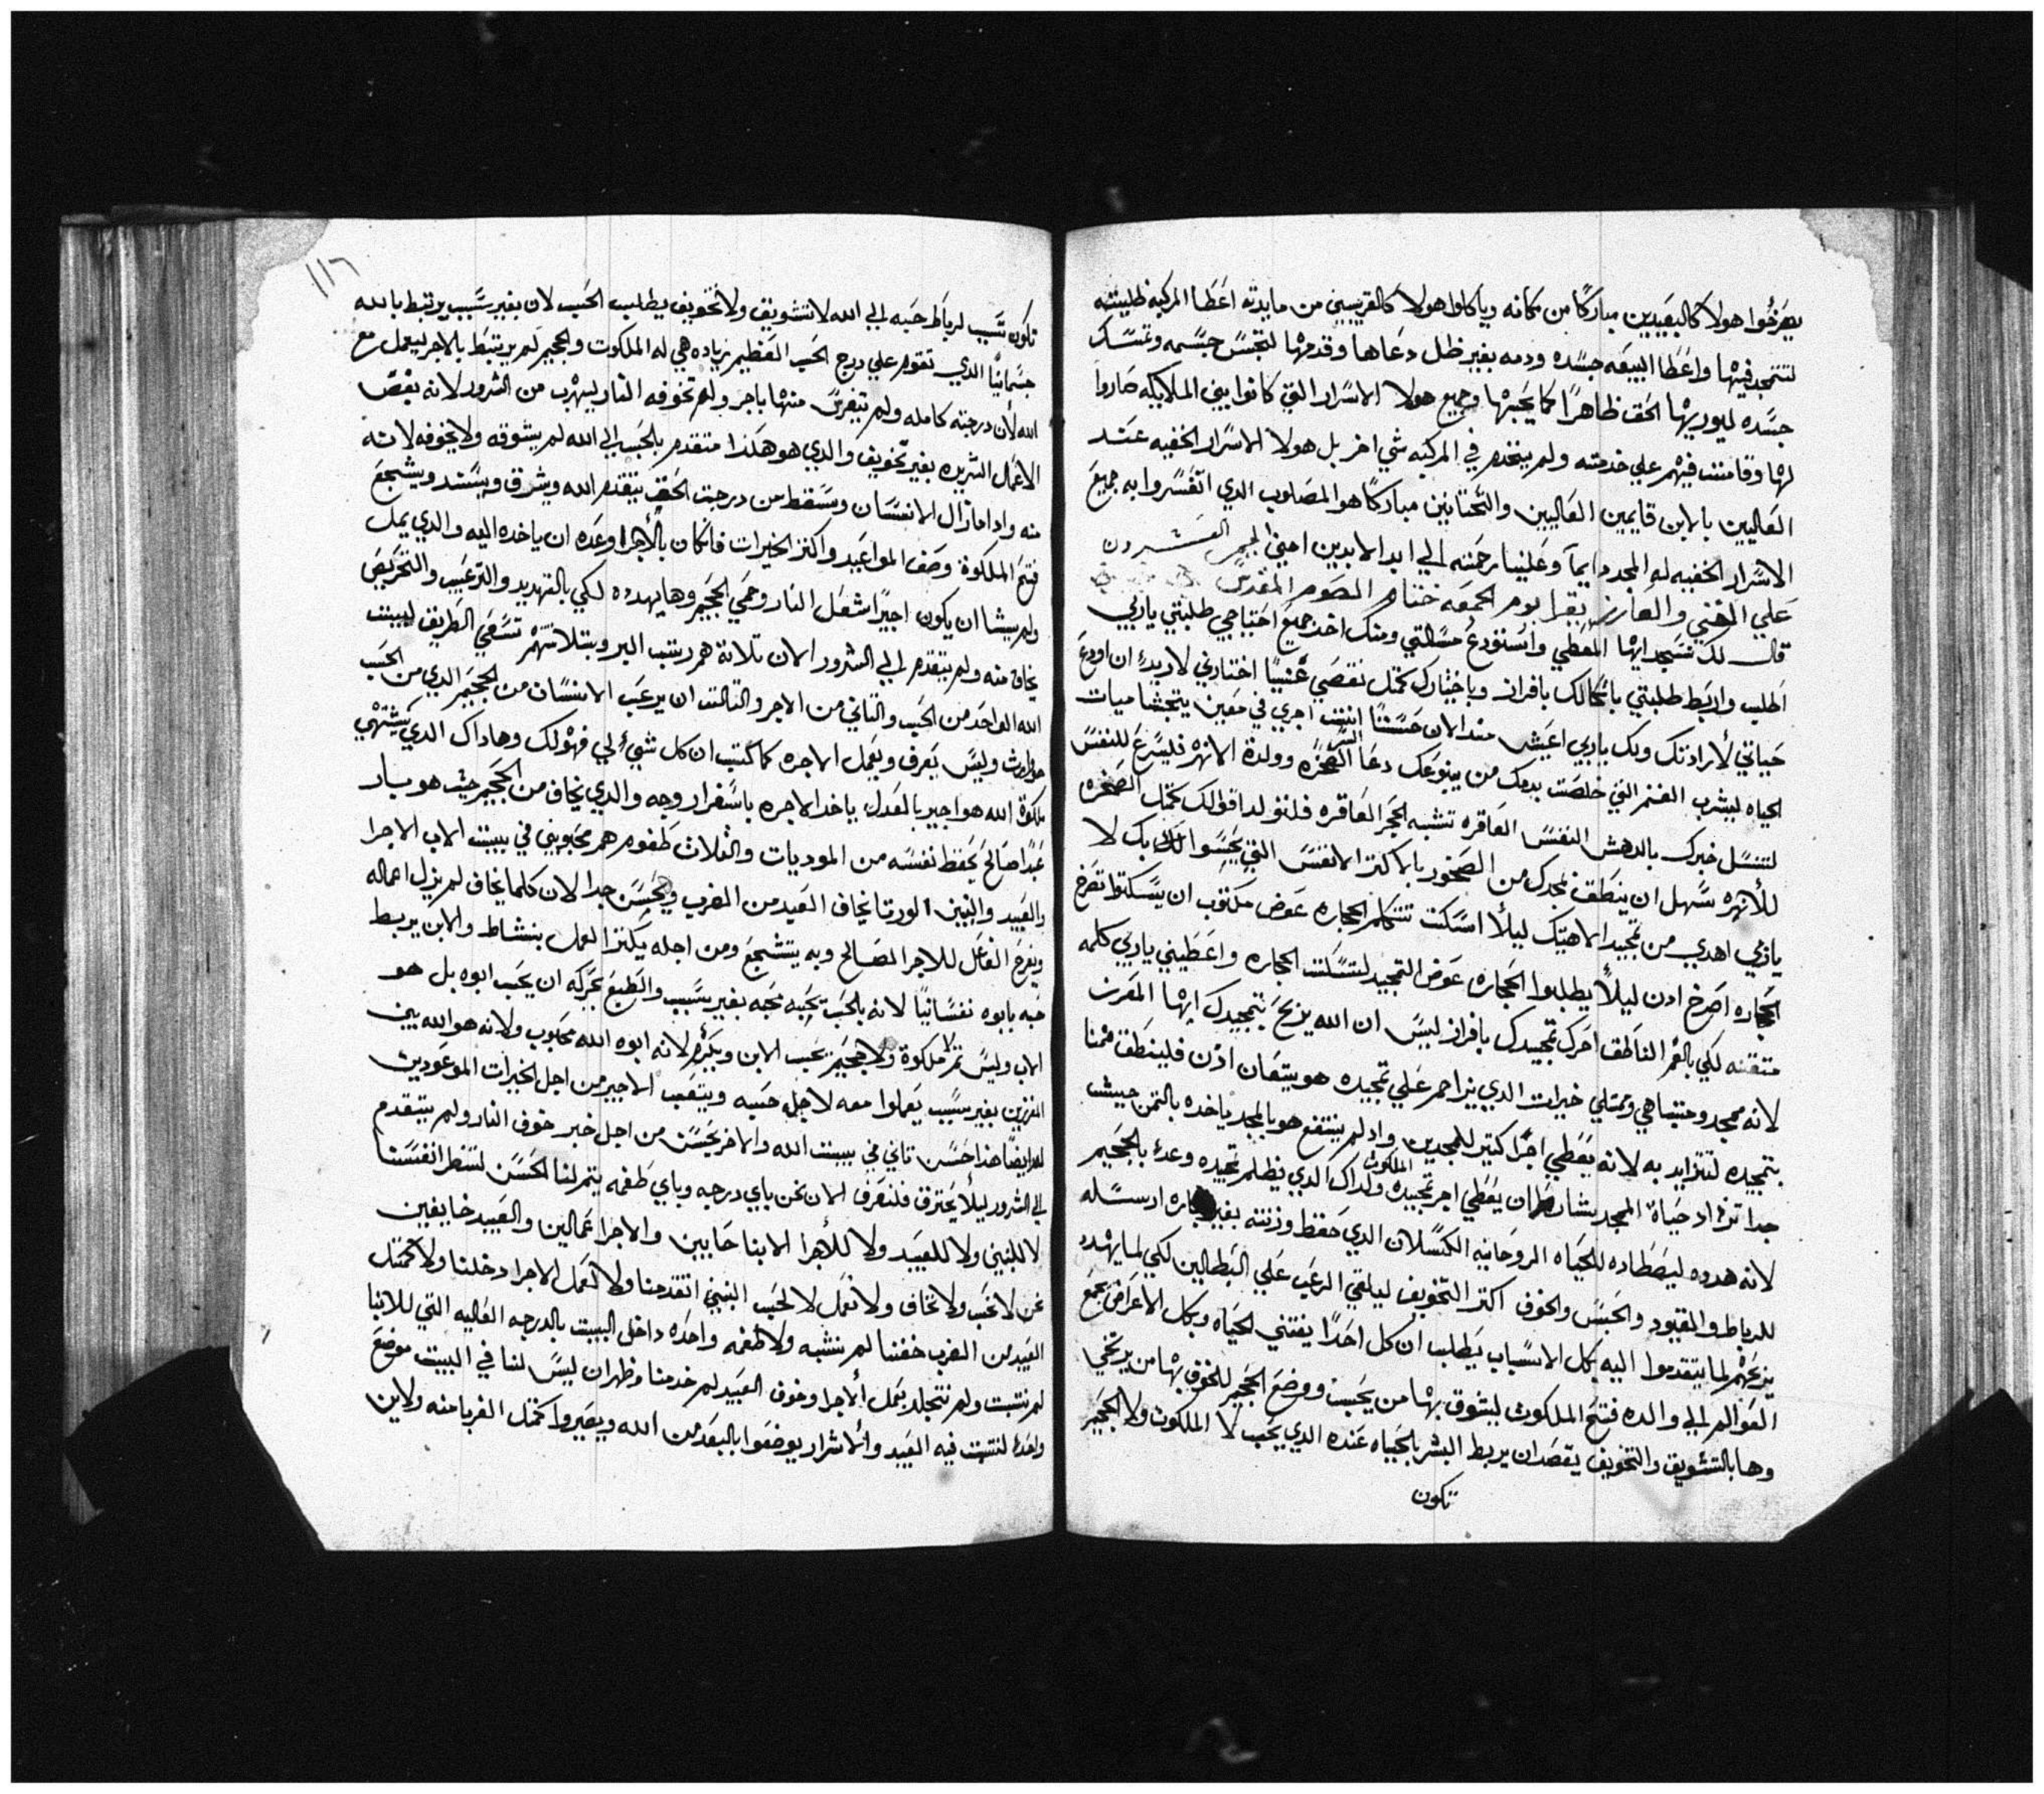 يفرحوا هولا كالبعيدين مباركًا من مكانه وياكلوا هولا كالقريبين من مايدته اعَطا المركبه طليبته
لتتمجد فيها واعَطا البيعَه جسَده ودمه بغير ظل دعَاها وقدمها لتجسَّ جسَمه وتمسَك
جسَده ليوريها الحَق ظاهرًا كما يحَبها وجميع هولا الاسَرار التي كانوا بين الملايكه صَاروا
لها وقامت فيهم علي خدمته ولم ينخدم في المركبه شي اخر بل هولا الاسَرار الخفيه عَند
العَاليين بالابن قايمين العَاليين والتحَتانيين مباركًا هو المصَلوب الدي اتفسَروا به جميعَ
الاسَرار الخفيه له المجد دايمآ وعَلينا رحَمته الي ابد الابدين امين الميمر العَشرون
عَلي الغني والعازر يقرا يوم الجمعَه ختام الصَوم المقدسَ
قال لك نسَجد ايها المعَطي واسَتودعَ مسَالتي ومنك اخد جميعَ احَتياجي طلبتي ياربي
اطلب واربط طلبتي باتكالك بافراز وباختارك كمتل نقصَي غَنيًا اختارني لاربدي ان اودعَ
حَياتي لأرادتك ولك ياربي اعَيش مند الان حَسَنًا انت اجري في معَين يتجشا ميات
الحياه ليشرب الغنم التي خلصَت بدمك من ينبوعَك دعَا الصَخره وولدة الانهر فليسَرعَ للنفسَ
لتنسَل خبرك بالدهش النفسَ العَاقره تشبه الحَجر العَاقره فلتولد اقوالك كمتل الصَخره
للأنهره سَهل ان ينطَق لمجدك من الصَخور بالاكتر الانفسَ التي يحَسَوا بك لا
ياربي اهدي من تمجيد الاهيتك ليلأ اسَكت تتكلم الحجاره عَوض مكتوب ان يسَكتوا تصَرخ
الحجاره اصَرخ ادن ليلاً يطلبوا الحَجاره عَوض التمجيد لتسَكت الحجاره واعَطيني ياربي كلمه
متقنه لكي بالفم الناطَق احَرك تمجيدك بافراز ليسَ ان الله يربحَ بتمجيدك ايها المفرز
لانه ممجد ومتباهي وتمتلي خيرات الدي يزاحم عَلي تمجيده هو يتعَان ادن فلينطَق فمنا
بتمجيده لتتزايد به لانه يعَطي اجرًا كتير للمجدين وادلم ينتفع هو بالمجد ياخده بالتمن حيث
جدا تزداد حَياة المجد يشا ان يعَطي اجر تمجيده الملكوت ولداك الدي يظلم تمجيده وعَده بالجحَيم
لانه هدده ليصَطاده للحَياه الروحَانيه الكسَلان الدي حَفظ وزنته بغير تجاره ارسَله
للرباط والقيود والحَبسَ والخوف اكتر التخويف ليلقي الرعَب عَلي البَطالين لكي لما يهدد
يزعَجهم لما يتقدموا اليه بكل الاسَباب يَطلب ان كل احَدًا يقتني الحَياه وبكل الاعَراض يجمعَ
العَوالم الي والده فتحَ الملكوت ليشوق بها من يحَبب ووضعَ الجحَيم للخوف بها من يرتخي
وها بالتشويق والتخويف يقصَد ان يربط البشر بالحَياه عَنده الدي يحَب لا الملكوت ولا الجحَيم
تكون
١١٦
تكون سَبب لرباط حبه الي الله لا تشويق ولا تخويف يطلب الحَب لان بغير سَبب يرتبط بالله
جسَمانيًا الدي تقوم علي درج الحَب العَظيم زياده هي له الملكوت والجحَيم لم يرتبط بالاجر ليعَمل مع
الله لأن درجته كامله ولم تنفرسَ منها باجر ولم تخوفه النار ليهرب من الشرور لانه بغضَ
الاعَمال الشريره بغير تخويف والدي هو هكذا متقدم بالحَب الي الله لم يشوقه ولا يخوفه لانه
منه وادا مازال الانسَان وسَقط من درجت الحَق يتقدم الله ويشرق ويسَند ويشجعَ
فتحَ الملكوة وصَف المواعَيد واكتر الخيرات فان كان بالأجرا وعَده ان ياخده اليه والدي يمل
ولم يشا ان يكون اجيرًا اشعَل النار وحمي الجَحيم وها يهدده لكي بالتهديد والترعَيب والتحَريضَ
يخاف منه ولم يتقدم الي الشرور الان تلاتة هم رتب البر وبتلاتتهم تسَعَي الطَريق لبيت
الله الواحَد من الحَب والتاني من الاجر والتالت ان يرعَب الانسَان من الجَحيم الدي من الحَب
هو وارث وليسَ يعَرف ويعَمل الاجره كما كتب ان كل شئ لي فهو لك وهاداك الدي يَشتهي
ملكوة الله هو اجير بالعَدل ياخد الاجره باسَفرار وجه والدي يخاف من الجحَيم حيث هو سار
عَبدًا صَالحَ يحَفظ نفسَه من الموديات والثلاث طَقوم هم محَبوبين في بيت الاب الاجرا
والعَبيد والبنين الورتا يخاف العَبد من الضرب ويحَسَن جدا لان كلما يخاف لم يزل اعماله
ويفرحَ الفاعَل للاجر الصَالح وبه يتشجعَ ومن اجله يكتر العمل بنشاط والابن يربط
حَبه بابوه نفسَانيًا لانه بالحَب يحَبه محَبه بغير سَبب والطَبعَ يحَركه ان يحَب ابوه بل هو
الاب وليسَ تم ملكوة ولا جحيَم يحَب الابن ويكَرم لانه ابوه الله محَبوب ولانه هو الله يبن
المفرزين بغير سَبب يعَملوا معه لاجل حَبه ويتعَب الاجير من اجل الخيرات الموعَودين
له ايضًا هذا حَسَن تاني في بيت الله والاخر يحَسَن من اجل خبر خوف النار ولم يتقدم
الي الشرور ليلأ يحَترق فلنعَرف الان نحن باي درجه وباي طَقمه يتم لنا الحَسَن لننظر انفسَنا
لا للبنين ولا للعَبيد ولا للأجرا الابنا حَابين والاجرا عَمالين والعَبيد خايفين
نحن لا نحَب ولا نخاف ولا نعَمل لا لحَب البنين اتقدمنا ولا لعَمل الاجرا دخلنا ولا كمتل
العَبيد من الضرب خفنا لم نتشبه ولا طقمه واحَده داخل البيت بالدرجه العَاليه التي للابنا
لم نتبت ولم نتجلد بعَمل ألاجرا وخوف العَبيد لم خدمنا وظهر ان ليسَ لنا في البيت موضعَ
واحَدا لنتبت فيه العَبيد وألاشرار يوضعَوا بالبعَد من الله ويصَيروا كمتل الغربا منه ولاين